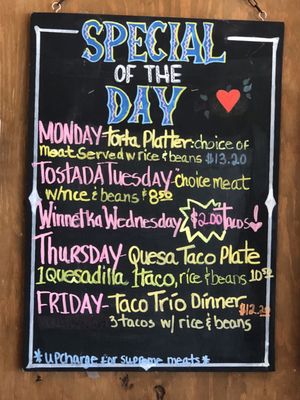 SPECIAL
OF THE
DAY
MONDAY-Torta Platter: choice of
meat served w/rice & beans $13.20
TOSTADA TUESDAY-choice meat
w/rice & beans $8.50
Winnetka Wednesday $2.00 Tacos!
THURSDAY-Quesa Taco Plate
1 Quesadilla 1 taco, rice & beans
FRIDAY-Taco Trio Dinner
3 tacos w/ rice & beans
*upcharge for supreme meats*